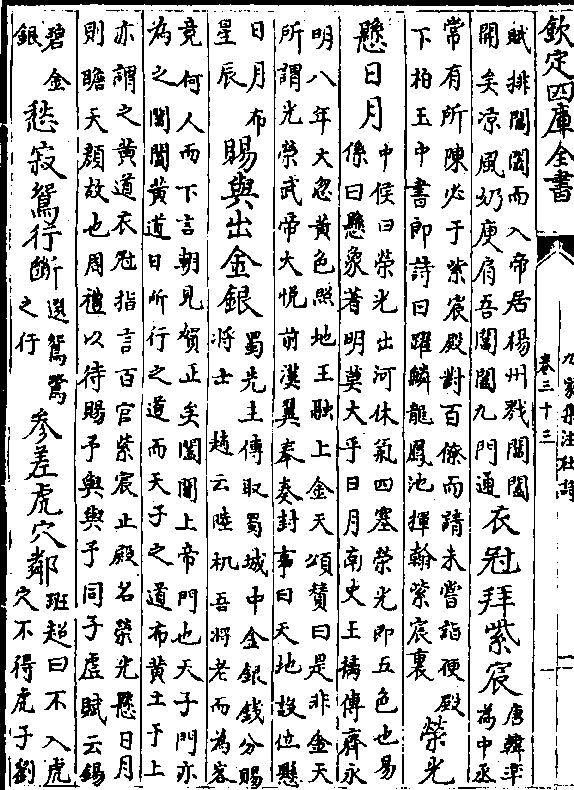 欽定四庫全書
九家集注杜詩
卷三十三
一
賦排閶闔而入帝居楊州戮閶闔
開矣凉風奶庾肩吾閶闔九門通
衣冠拜紫宸
唐韓臯
為中丞
常有所陳必于紫宸殿對百僚而請未嘗詣便殿
下柏玉中書郎詩曰躍鱗龍鳳池揮翰紫宸裏
榮光
懸日月
中侯曰榮光出河休氣四塞榮光即五色也易
係曰懸象著明莫大乎日月南史王摛傳齊永
明八年大忽黃色照地王融上金天頌贊曰是非金天
所謂光榮武帝大悅前漢翼奉奏封事曰天地設位懸
日月布
星辰
賜與出金銀
蜀先主傳取蜀城中金銀錢分賜
將士 趙云陸机吾將老而為客
竟何人而下言朝見賀正矣閶闔上帝門也天子門亦
為之閶闔黃道日所行之道而天子之道布黃土于上
亦謂之黃道衣冠指言百官紫宸正殿名榮光懸日月
則瞻天顏故也周禮以待賜予與與予同子虛賦云錫
碧金
銀
愁寂鴛行斷
選鴛鷺
之行
參差虎穴鄰
班超曰不入虎
穴不得虎子劉